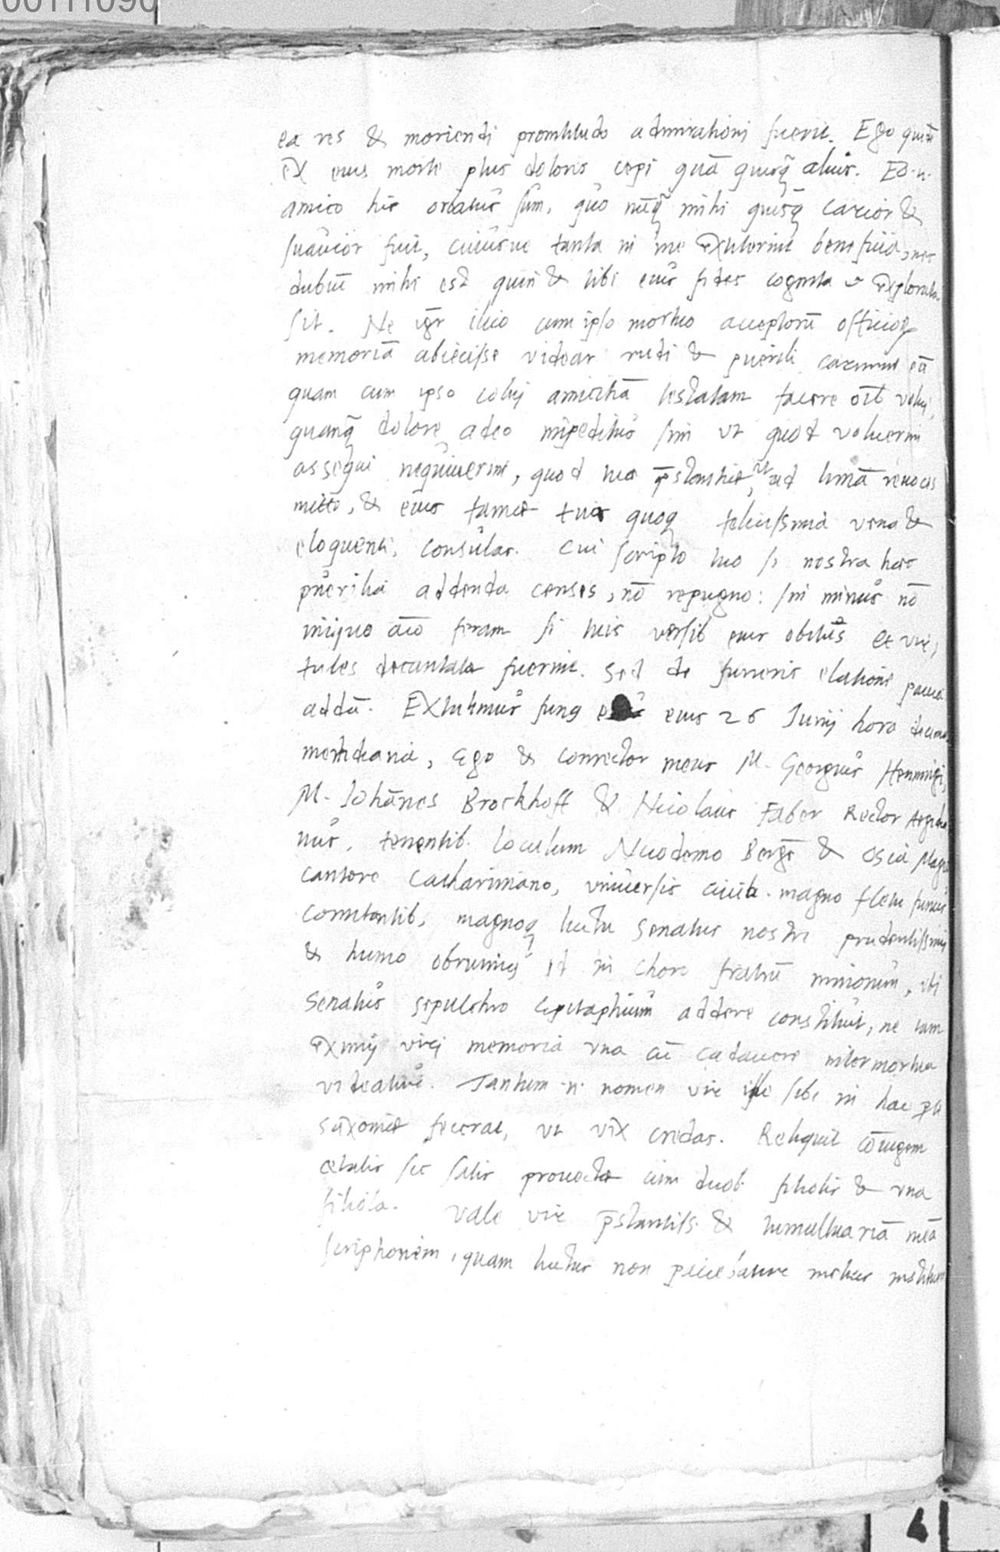 00111090
ea res & moriendi promtitudo admirationi fuerit. Ego quidē
ex eius morte plus doloris cepi quā quisq̃ alius. Eo .n.
amico hic orbatus sum, quo nūq̃ mihi quisq̃ carior &
suauior fuit, cuiusue tanta in me extiterint beneficia, nec
dubiū mihi est quin & tibi eius fides cognita & explorata
sit. Ne igr̄ ilico cum ipso mortuo acceptorū officioꝝ
memoriā abiecisse videar rudi & puerili carmine eā
quam cum ipso colui amicitiā testatam facere volui,
quanq̃ dolore adeo impeditus sim vt quod voluerim
assequi nequiuerim, quod tuae p̄stantiae, vt ad limā reuoces
mitto, & eius tamen tua quoq felicissima vena &
eloquentia, consular. Cui scripto tuo si nostra haec
puerilia addenda censes, nō repugno: sin minus nō
iniquo aīo feram si tuis versib eius obitus et vir,
tutes decantatae fuerint. Sed de funeris elatione pauca
addā. Extulimus fung eius 26 Junij hora
meridiana, ego & conrector meus M. Georgius Henningi,
M. Johānes Brockhoff & Nicolaus Faber Rector
nus, tenentib. loculum Nicodemo Berg & Osia
cantore Cathariniano, vniuersis ciuib. magno fletu funus
comitantib, magnoq luctu Senatus nostri prudentissimi
& humo obruimus et in choro fratrū minorum, vbi
Senatus sepulchro epitaphium addere constituit, ne tam
eximij viri memoria vna cū cadauere intermortua
videatur. Tantum .n. nomen vir ille sibi in hac
Saxoniae fecerat, vt vix credas. Reliquit cōiugem
aetatis sec satis prouectae cum duob. filiolis & vna
filiola. Vale vir p̄stantiss. & tumultuariā meā
scriptionem, quam luctus non passus